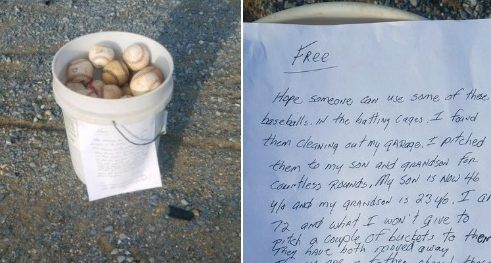 FREE
Hope someone can use some of these
baseballs. in the batting cages. I found
them cleaning out my garage. I pitched
them to my son and grandson for
countless rounds. My son is now 46
y/o and my grandson is 23 y/o. I am
72 and what I won't give to
pitch a couple of buckets to them
They have both moved away